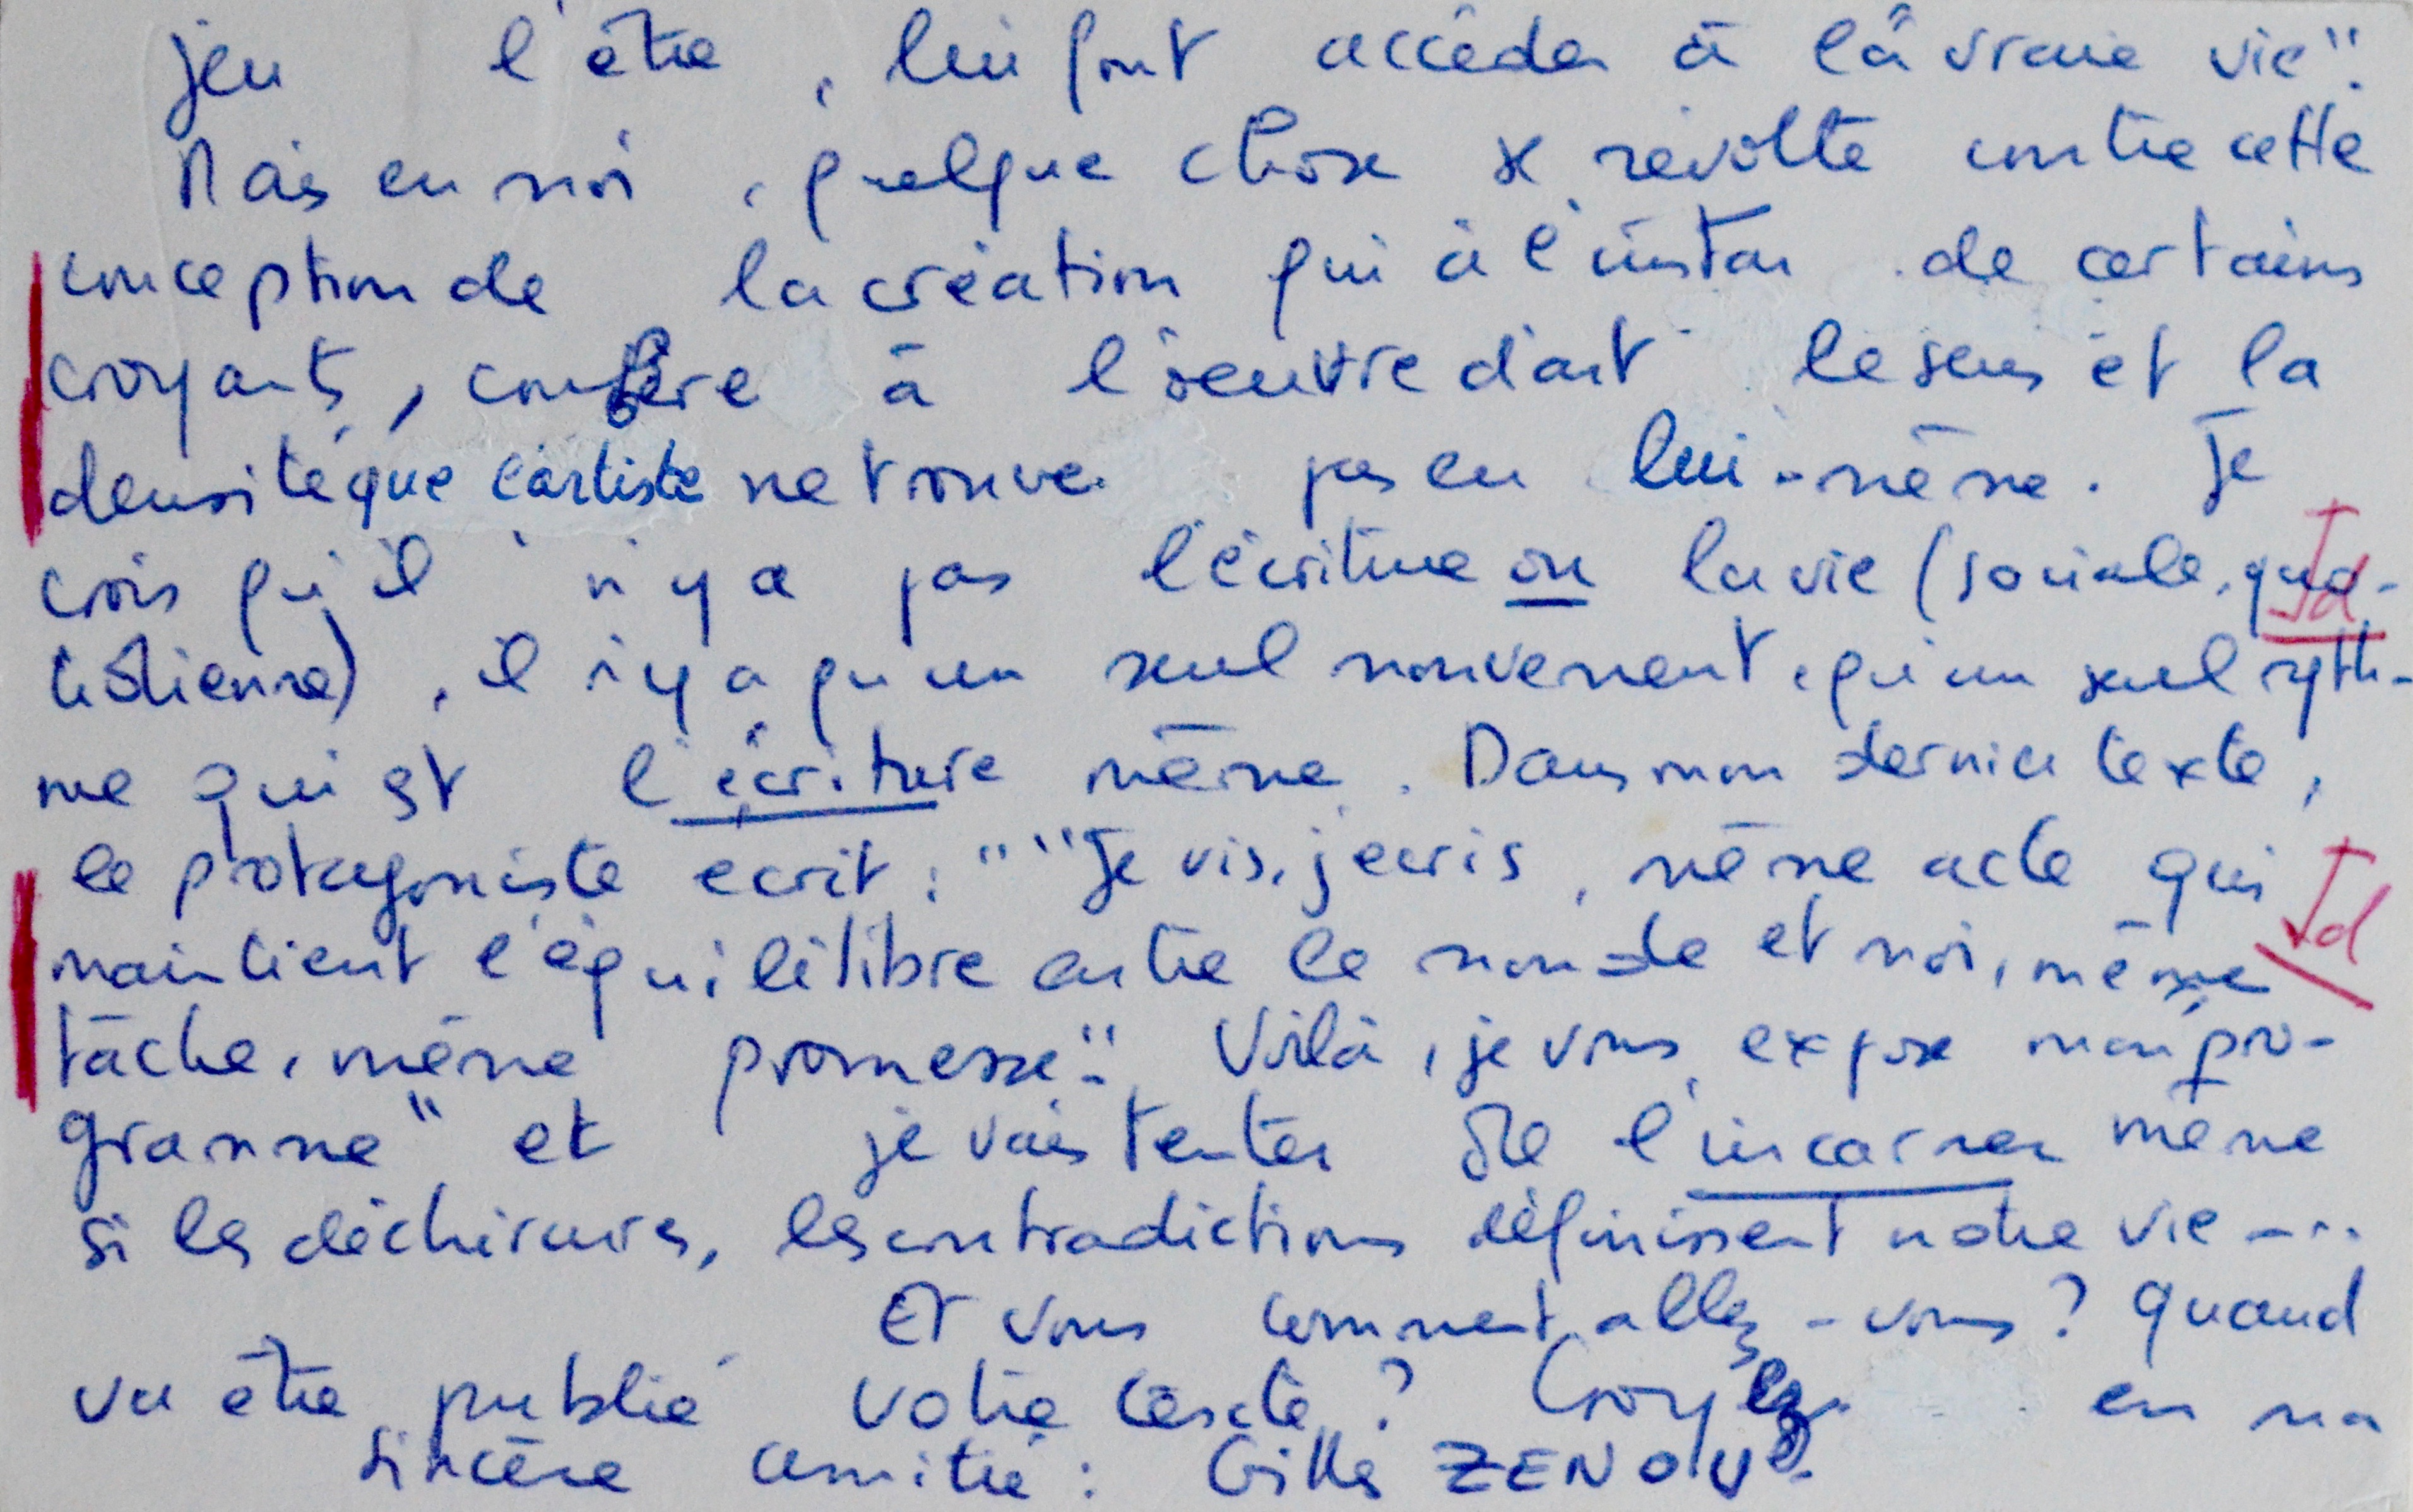 jeu l'être, lui font accéder à "la vraie vie".
Mais en moi, quelque chose se révolte contre cette
conception de la création qui à l'instar de certains
croyants, confère à l'oeuvre d'art le sens et la
densité que l'artiste ne trouve pas en lui-même. Je
crois qu'il n'y a pas l'écriture ou la vie (sociale, quo-
tidienne), il n'y a qu'un seul mouvement, qu'un seul ryth-
me qui est l'écriture même. Dans mon dernier texte,
le protagoniste écrit : " "Je vis, j'écris, même acte qui
maintient l'équilitibre entre le monde et moi, même
tâche, même promesse". Voilà, je vous expose mon "pro-
gramme" et je vais tenter de l'incarner même
si les déchirures, les contradictions définissent notre vie ...
Et vous comment allez-vous ? Quand
va être publié votre texte ? Croyez en ma
sincère amitié : Gilles ZENOU.
Jd
Jd